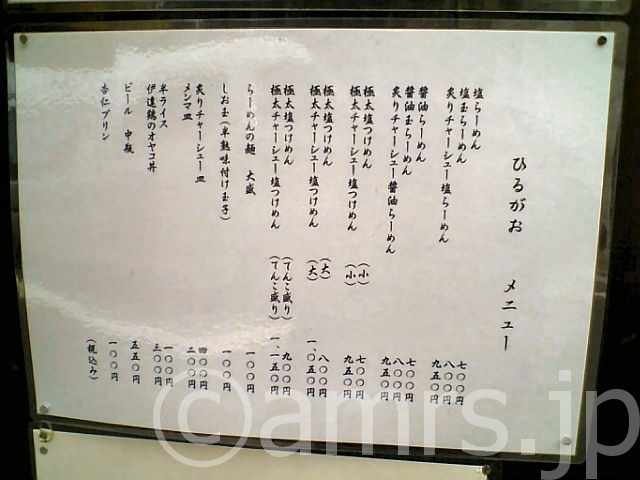 ひるがお　メニュー
塩らーめん　七〇〇円
塩玉らーめん　八〇〇円
炙りチャーシュー塩らーめん　九五〇円
醤油らーめん　七〇〇円
醤油玉らーめん　八〇〇円
炙りチャーシュー醤油らーめん　九五〇円
極太塩つけめん　（小）　七〇〇円
極太チャーシュー塩つけめん　（小）　九五〇円
極太塩つけめん　（大）　八〇〇円
極太チャーシュー塩つけめん　（大）　一、〇五〇円
極太塩つけめん　（てんこ盛り）　九〇〇円
極太チャーシュー塩つけめん　（てんこ盛り）　一、一五〇円
らーめんの麺　大盛　一〇〇円
しお玉（半熟味付け玉子）　一〇〇円
炙りチャーシュー皿　四〇〇円
メンマ皿　二〇〇円
半ライス　一〇〇円
伊達鶏のオヤコ丼　三〇〇円
ビール　中瓶　五五〇円
杏仁プリン　一〇〇円
（税込み）
©amrs.jp